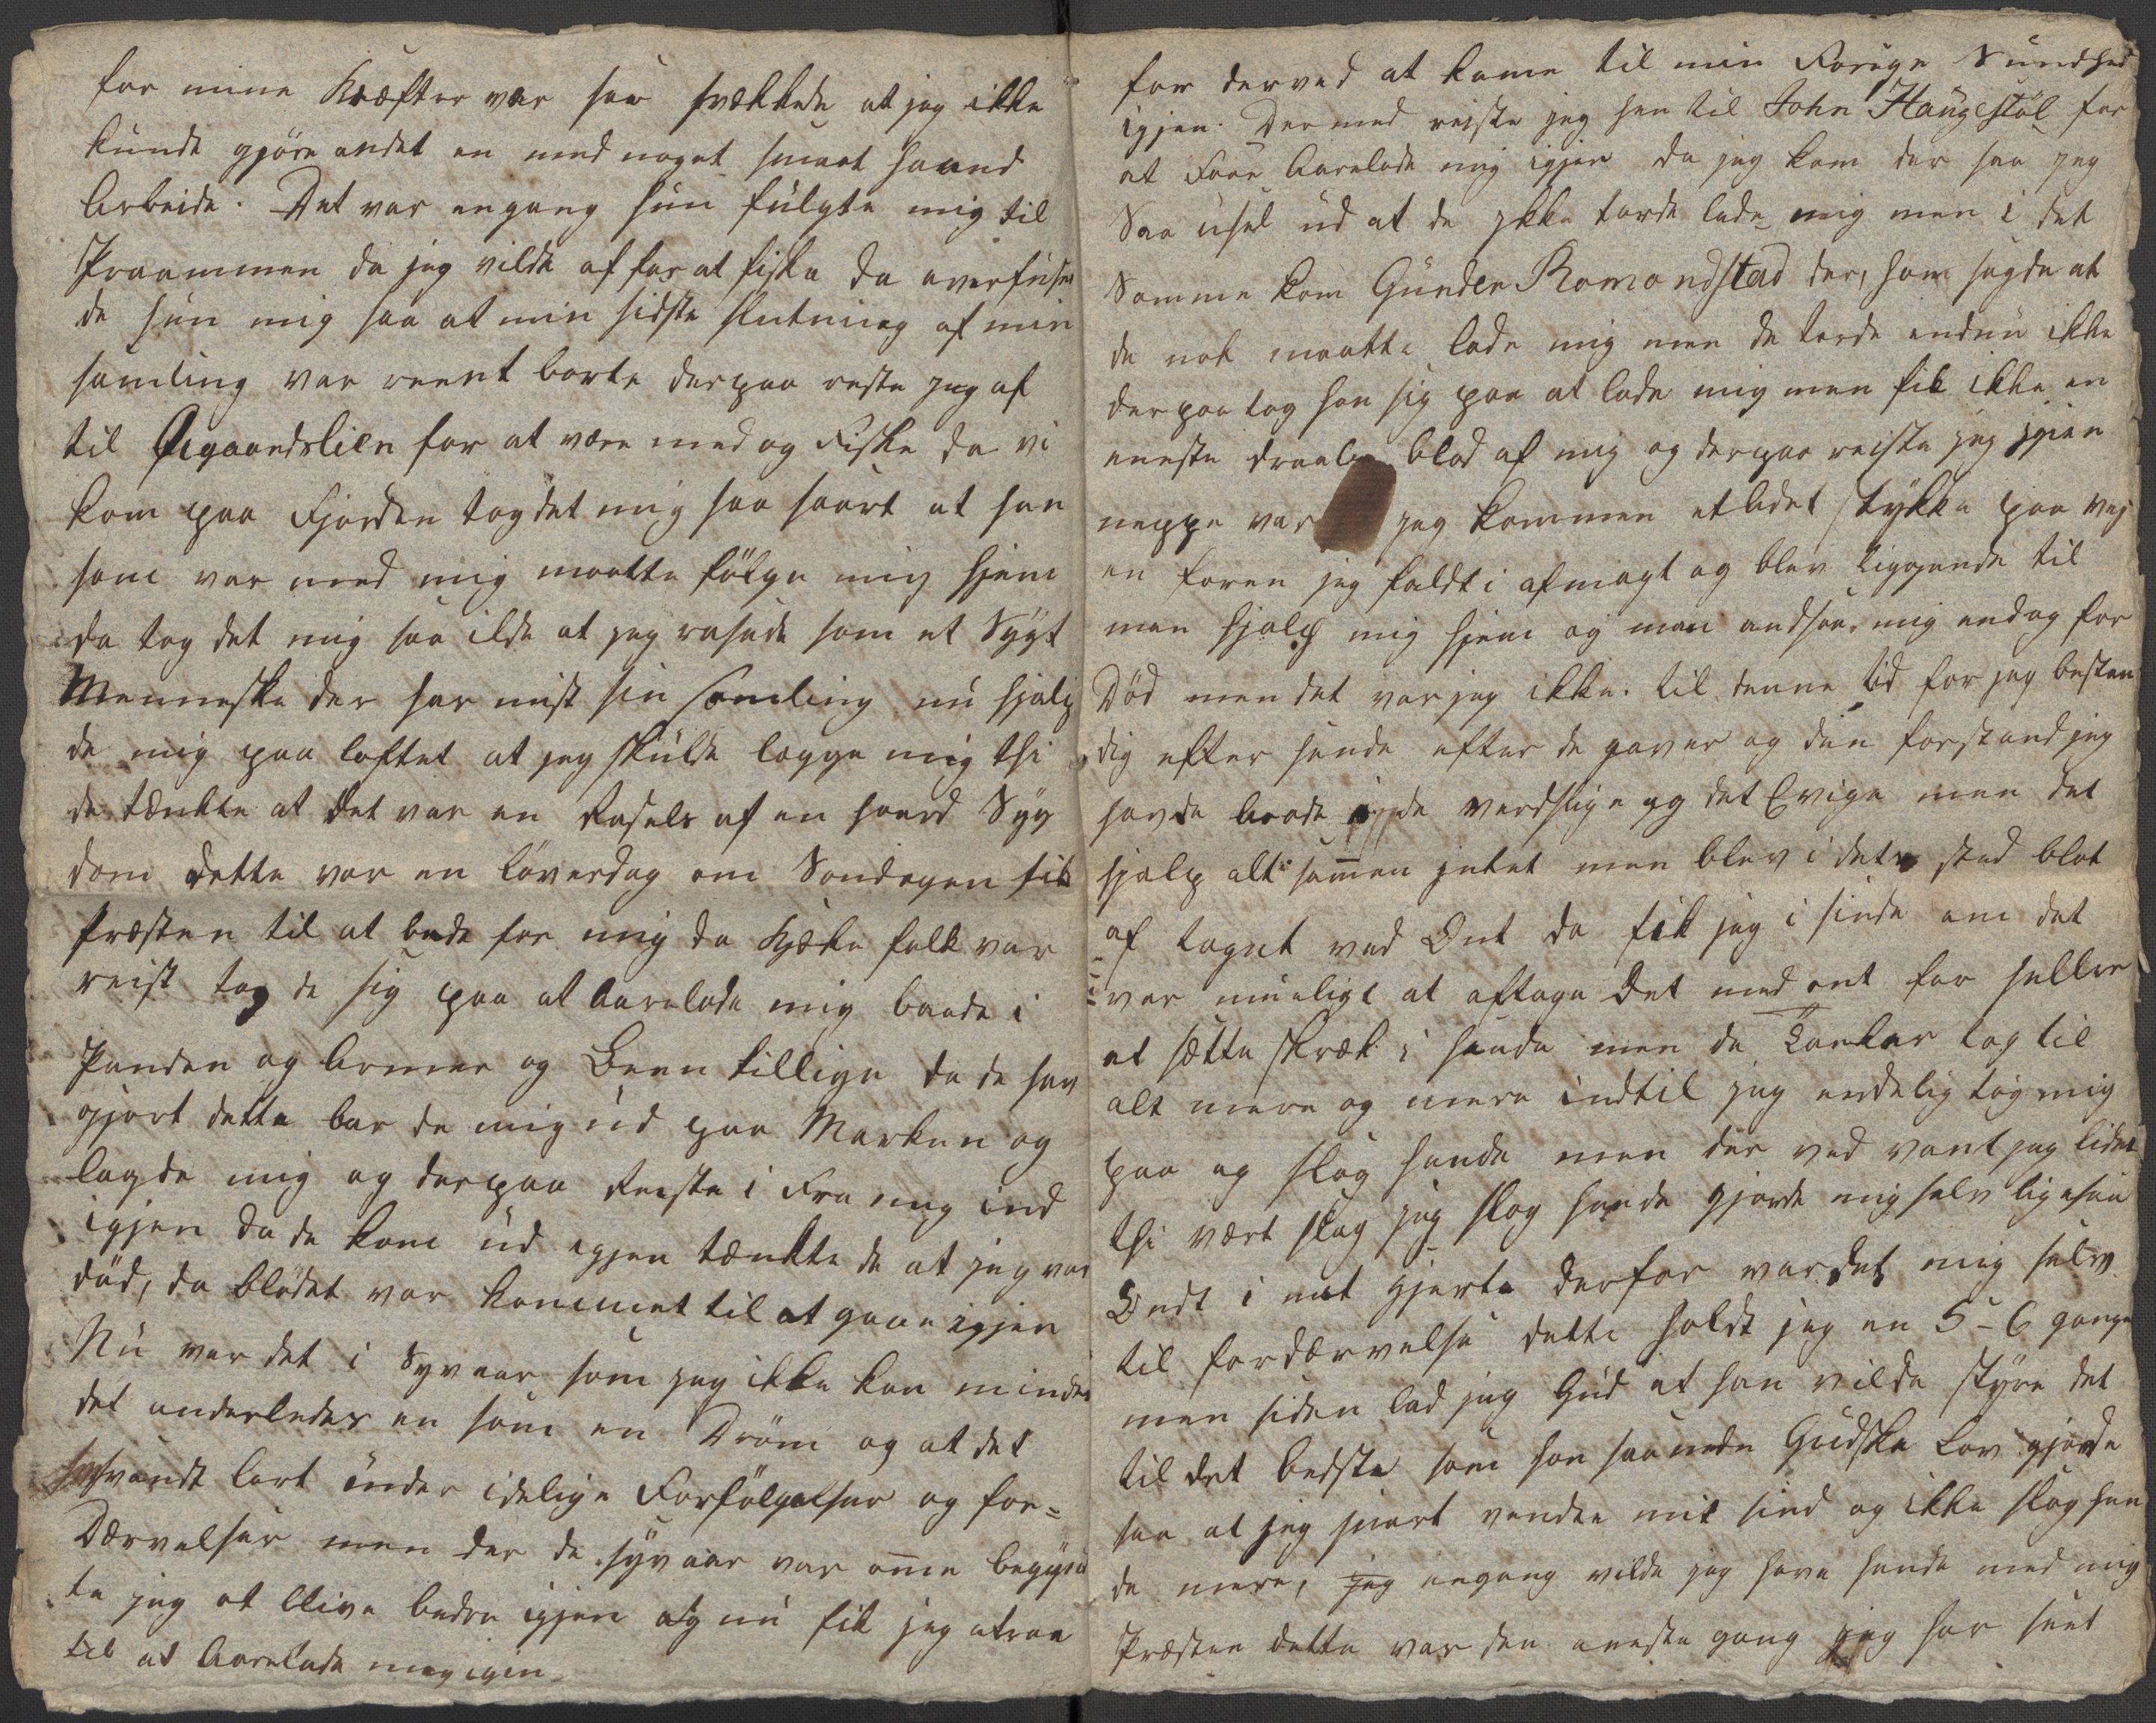 for mine Kræfter var saa svækkede at jeg ikke
kunde gjöre andet en med noget smaat haand
Arbeide. Det var engang hun fulgte mig til
Praammen da jeg vilde af for at fiske da overfuse
de hun mig saa at min sidste slutning af min
samling var reent borte derpaa reste jeg af
til Øigaardslien for at være med og Fiske da vi
kom paa Fjorden tog det mig saa haart at han
som var med mig maatte fölge mig hjem
da tog det mig saa ilde at jeg rasede som et Sygt
Menneske der har mist sin samling nu hjalp
de mig paa loftet at jeg skulde lægge mig thi
de tænkte at det var en Raselse af en haard Syg
dom dette var en löverdag om Sondagen fik
Præsten til at bede for mig da Kjæke folk var
reist tog de sig paa at Aarelade mig baade i
Panden og Armer og Been tillige da de hav
gjort dette bar de mig ud paa Marken og
lagde mig og derpaa Reiste i Fra mig ind
igjen da de kom ud igjen tænkte de at jeg var
död, da blödet var kommet til at gaae igjen
Nu var det i Syv aar som jeg ikke kan mindes
det anderledes en som en Dröm og at det
svandt bort under idelige Forfölgelser og for=
Dærvelser men der de syv aar var ome begyn
te jeg at blive bedre igjen og nu fik jeg atraa
til at Aarelade mig igien
for derved at kome til min Forige Sundhed
igjen. Dermed reiste jeg hen til John Haugestöl for
at Faae Aarelade mig igjen da jeg kom der saa jeg
Saa usel ud at de ikke torde lade mig men i det
Samme kom Gunder Romondstad der, som sagde at
de nok maatte lade mig men de torde endnu ikke
derpaa tog han sig paa at lade mig men fik ikke en
eneste draabe blod af mig og derpaa reiste jeg igien
neppe var jeg kommen et lidet stykke paa vej
en foren jeg faldt i afmagt og blev liggende til
man hjalp mig hjem og man andsaae mig endog for
Död men det var jeg ikke. til denne tid for jeg bestan
dig efter hende efter de gaver og den forstand jeg
havde baade i de verdslige og det Evige men det
hjalp alt samen intet men blev i dets sted blot
af taget ved Ont da fik jeg i sinde om det
var mueligt at aftage det med ont for heller
at sætte skræk i hende men de Tanker tog til
alt mere og mere indtil jeg endelig tog mig
paa og slog hende men der ved vant jeg lidet
thi vært slag jeg slog hende gjorde mig selv ligesaa
Ondt i mit Hjerte derfor var det mig selv
til fordærvelse dette holdt jeg en 5-6 gange
men siden bad jeg Gud at han vilde styre det
til det bedste som han saa nede Gudske Lov gjorde
saa at jeg snart vendte mit sind og ikke slog hen
de mere, jeg engang vilde jeg have hende med mig
Præsten dette var den eneste gang jeg har seet